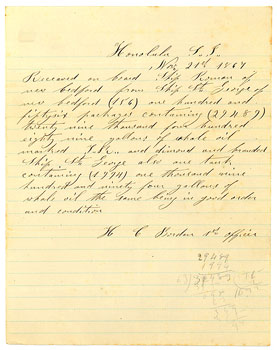 Honolulu S.I.
Nov 21st 1867
Received on board Ship Roman of
new bedford from Ship St George of
new bedford (156) one hundred and
fiftysix packages containing (29489)
twenty nine thousand four hundred
eighty nine gallons of whale oil
marked and dimond and branded
Ship St Gorge also one tank
containing (1994) one thousand nine
hundred and ninety four gallons of
whale oil the same being in good order
and condition
H C Borden 1st officer
29489
1994